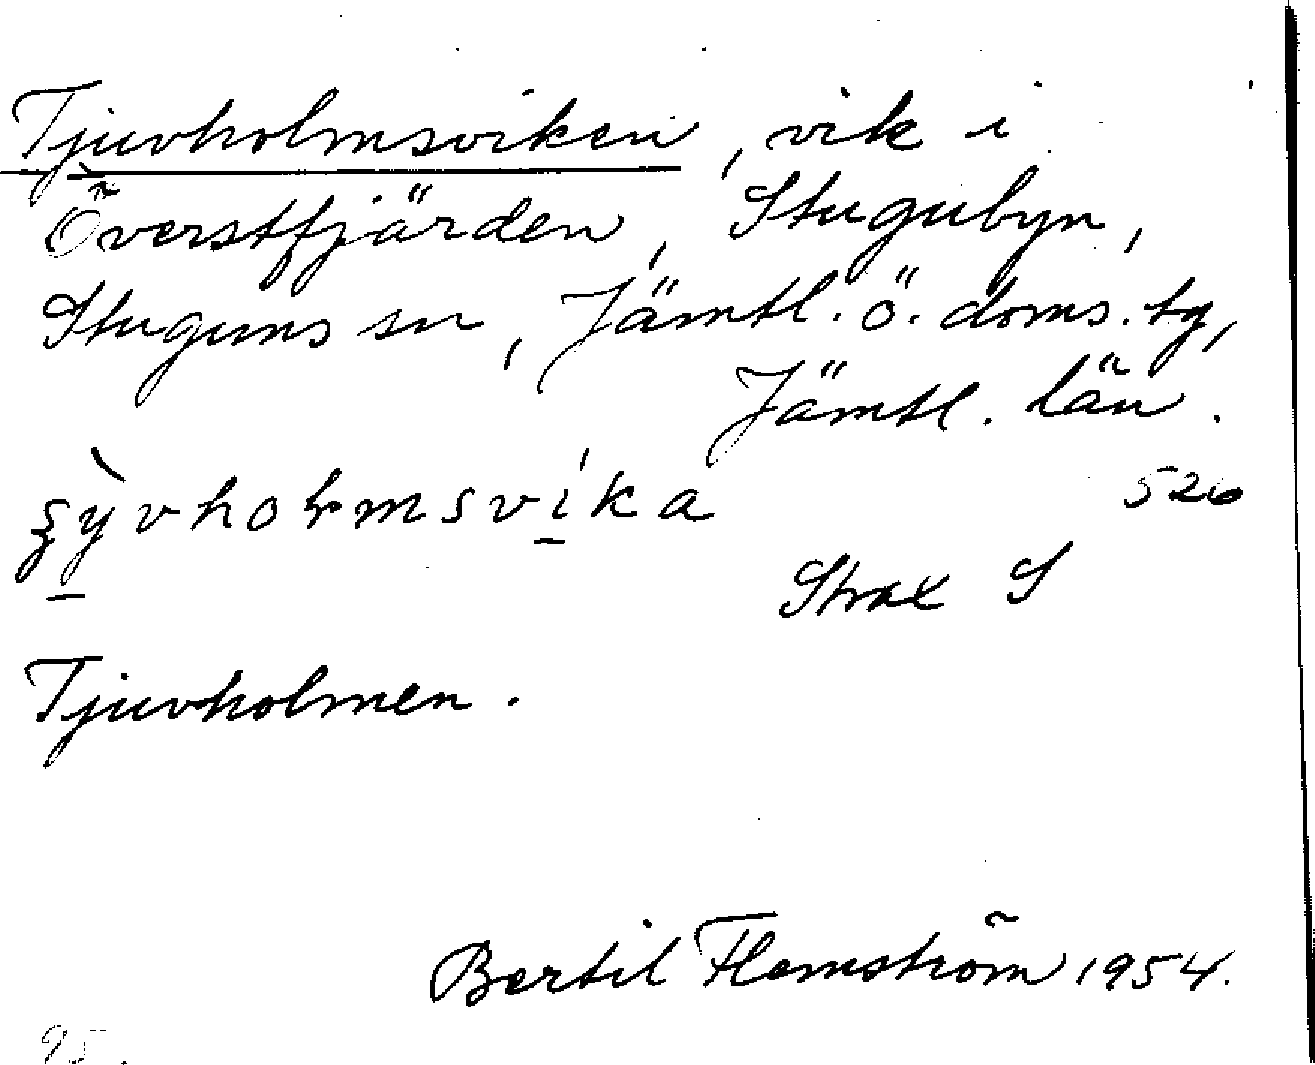 Tjuvholmsviken, vik i
Överstfjärden, Stugubyn,
Stuguns sn, Jämtl. ö. doms. tg,
Jämtl. län.
526
Strax S
Tjuvholmen.
Bertil Flemström 1954.
95.